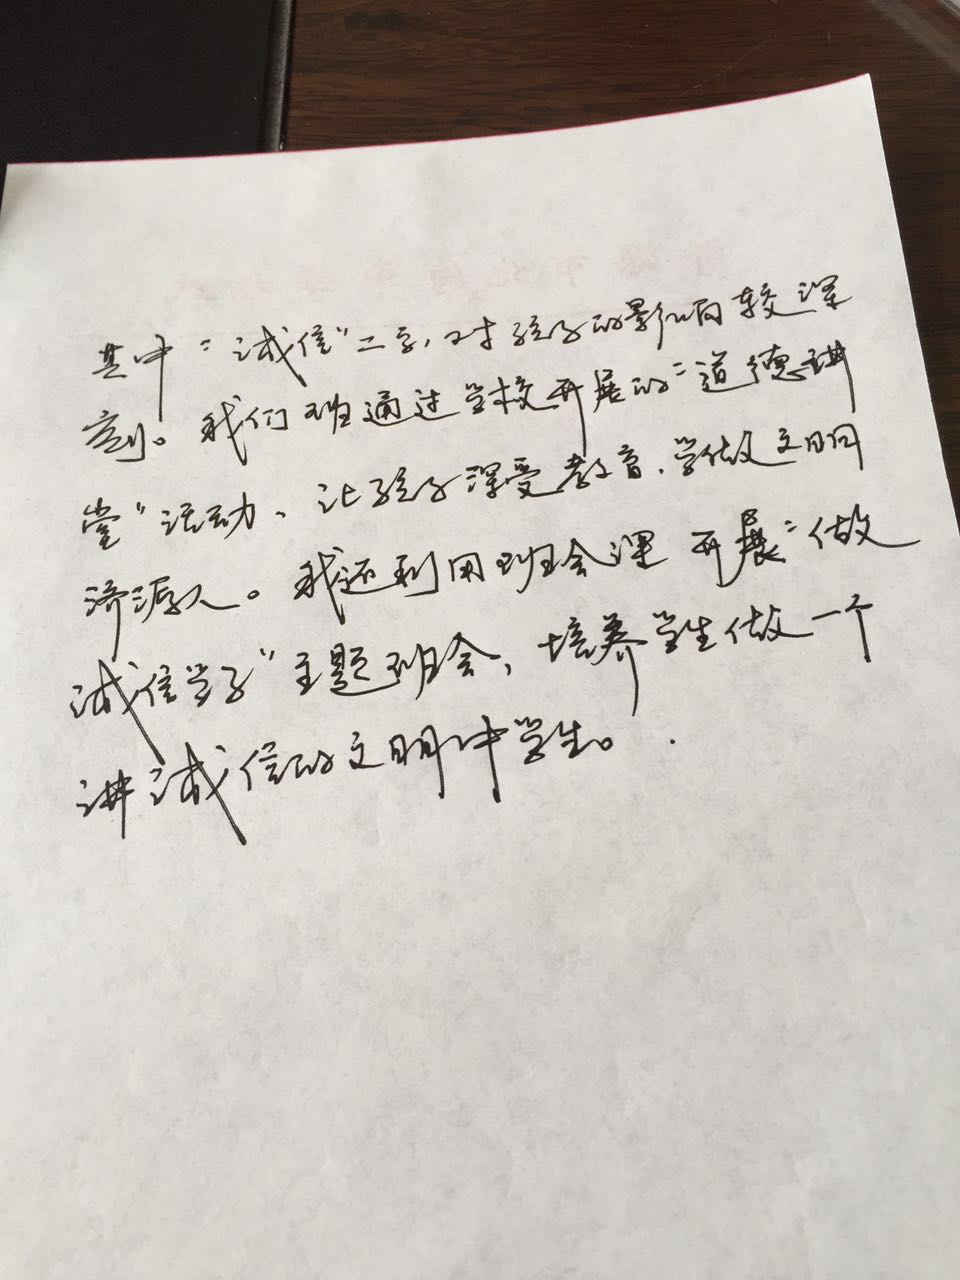 其中“诚信”二字，对孩子的影响较深
刻。我们班通过学校开展的“道德讲
堂”活动、让孩子深受教育，学做文明
济源人。我还利用班会课开展“做
诚信学子”主题班会，培养学生做一个
讲诚信的文明中学生。